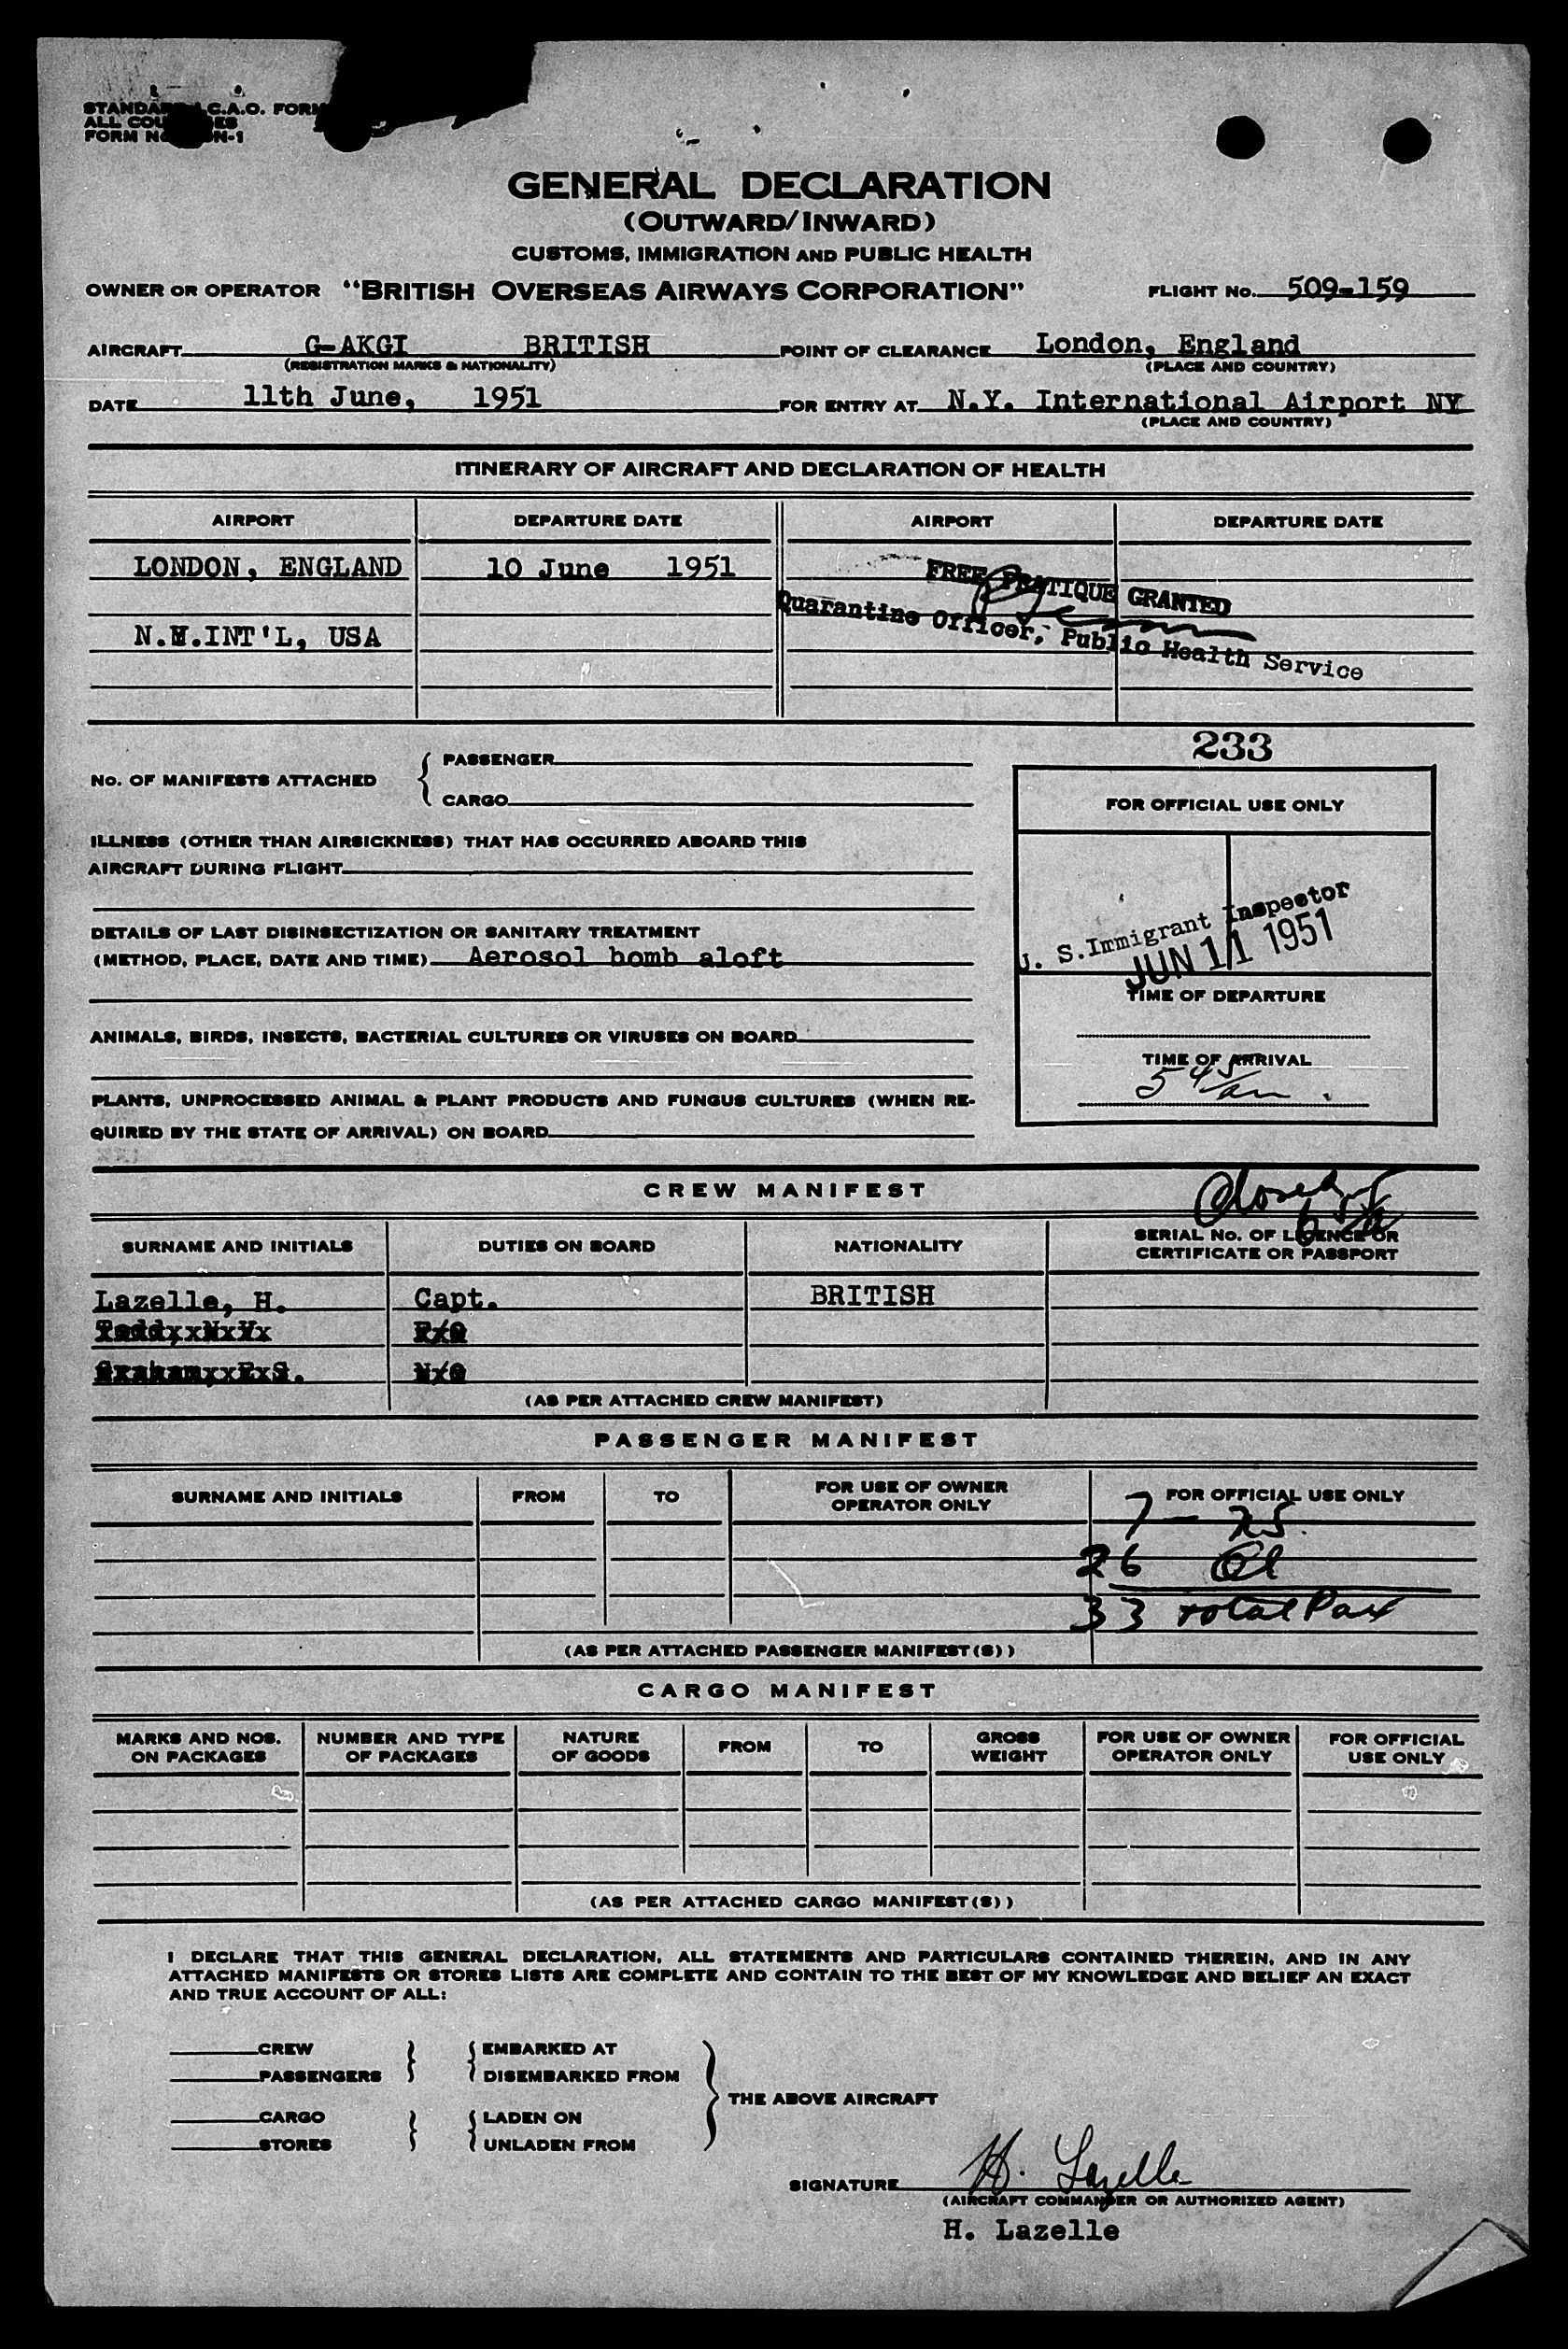 STANDARD I.C.A.O. FORM
ALL COU ES
FORM No. N-1
GENERAL DECLARATION
(OUTWARD/INWARD)
CUSTOMS, IMMIGRATION AND PUBLIC HEALTH
OWNER OR OPERATOR "BRITISH OVERSEAS AIRWAYS CORPORATION" FLIGHT No. 509-159
AIRCRAFT G-AKGI BRITISH POINT OF CLEARANCE London, England
(REGISTRATION MARKS & NATIONALITY) (PLACE AND COUNTRY)
DATE 11th June, 1951 FOR ENTRY AT N.Y. International Airport NY
(PLACE AND COUNTRY)
ITINERARY OF AIRCRAFT AND DECLARATION OF HEALTH
AIRPORT DEPARTURE DATE AIRPORT DEPARTURE DATE
LONDON, ENGLAND 10 June 1951
FREE PRATIQUE GRANTED
Quarantine Officer, Public Health Service
N.Y.INT'L, USA
233
No. OF MANIFESTS ATTACHED { PASSENGER
CARGO
FOR OFFICIAL USE ONLY
ILLNESS (OTHER THAN AIRSICKNESS) THAT HAS OCCURRED ABOARD THIS
AIRCRAFT DURING FLIGHT
U. S. Immigrant Inspector
JUN 11 1951
DETAILS OF LAST DISINSECTIZATION OR SANITARY TREATMENT
(METHOD, PLACE, DATE AND TIME) Aerosol bomb aloft
TIME OF DEPARTURE
ANIMALS, BIRDS, INSECTS, BACTERIAL CULTURES OR VIRUSES ON BOARD
TIME OF ARRIVAL
5 45/am
PLANTS, UNPROCESSED ANIMAL & PLANT PRODUCTS AND FUNGUS CULTURES (WHEN RE-
QUIRED BY THE STATE OF ARRIVAL) ON BOARD
CREW MANIFEST
Closed
SURNAME AND INITIALS DUTIES ON BOARD NATIONALITY SERIAL No. OF LICENCE OR
CERTIFICATE OR PASSPORT
Lazelle, H. Capt. BRITISH
(AS PER ATTACHED CREW MANIFEST)
PASSENGER MANIFEST
SURNAME AND INITIALS FROM TO FOR USE OF OWNER
OPERATOR ONLY FOR OFFICIAL USE ONLY
7 -
26
33 total Pax
(AS PER ATTACHED PASSENGER MANIFEST(S))
CARGO MANIFEST
MARKS AND NOS.
ON PACKAGES NUMBER AND TYPE
OF PACKAGES NATURE
OF GOODS FROM TO GROSS
WEIGHT FOR USE OF OWNER
OPERATOR ONLY FOR OFFICIAL
USE ONLY
(AS PER ATTACHED CARGO MANIFEST(S))
I DECLARE THAT THIS GENERAL DECLARATION, ALL STATEMENTS AND PARTICULARS CONTAINED THEREIN, AND IN ANY
ATTACHED MANIFESTS OR STORES LISTS ARE COMPLETE AND CONTAIN TO THE BEST OF MY KNOWLEDGE AND BELIEF AN EXACT
AND TRUE ACCOUNT OF ALL:
CREW } { EMBARKED AT }
PASSENGERS DISEMBARKED FROM
THE ABOVE AIRCRAFT
CARGO } { LADEN ON
STORES UNLADEN FROM
SIGNATURE H. Lazelle
(AIRCRAFT COMMANDER OR AUTHORIZED AGENT)
H. Lazelle